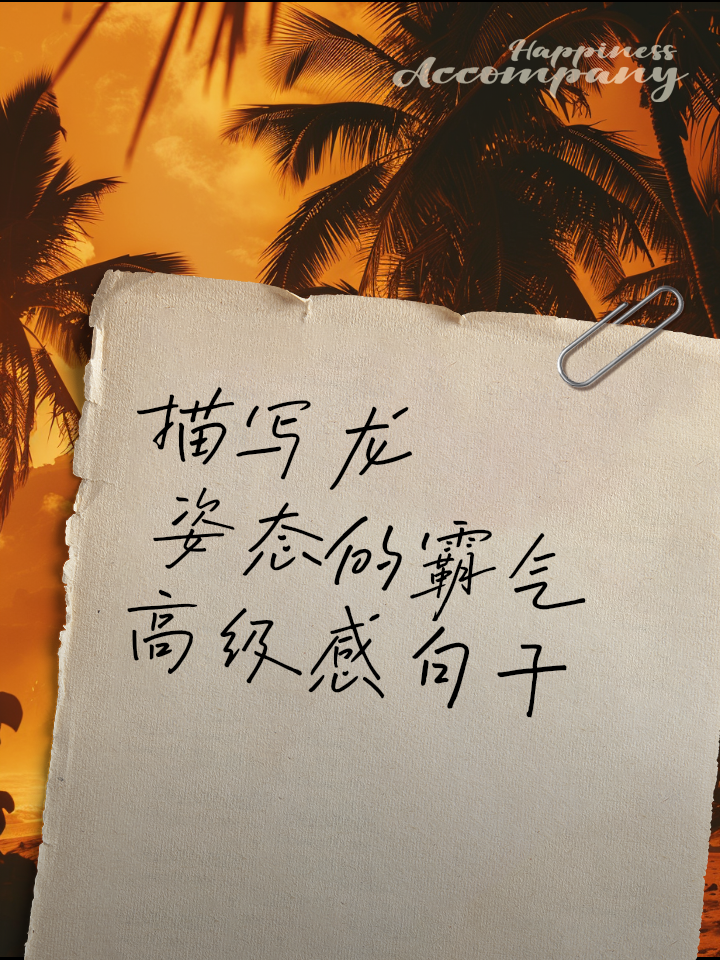 Happiness
Accompany
描写龙
姿态的霸气
高级感句子